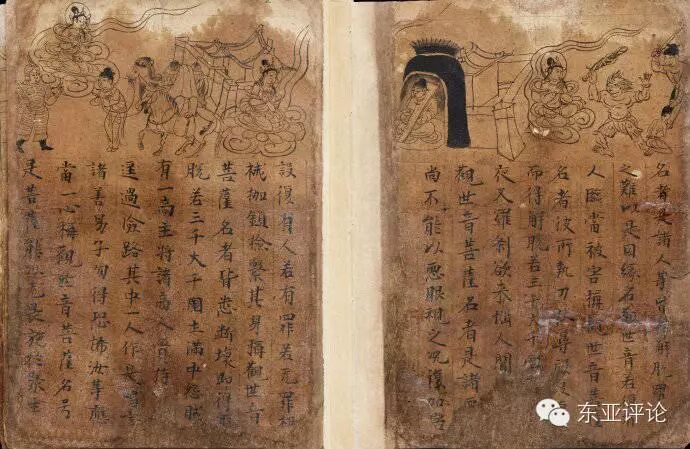 名者是諸人等皆得解脫羅
之難以是因緣名觀世音若
人臨當被害稱觀世音
名者彼所執刀杖尋段
而得解脫若三千大千
夜叉羅剎欲来惱人聞
觀世音菩薩名者是諸
尚不能以惡眼視之況復加害
設復有人若有罪若无罪杻
械枷鎖撿繫其身稱觀世音
菩薩名者皆悉斷壞即得
脫若三千大千國土滿中怨賊
有一商主將諸商人齎持
逕過險路其中一人作是唱言
諸善男子勿得恐怖汝等應
當一心稱觀世音菩薩名号
是菩薩能以无畏施於眾生
东亚评论